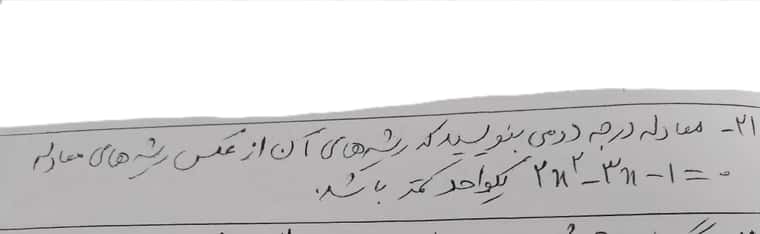 ۲۱- معادله درجه دومی بنویسید که ریشه‌های آن از عکس ریشه‌های معادله
۲x² - ۳x - ۱ = ۰ یکواحد کمتر باشد.